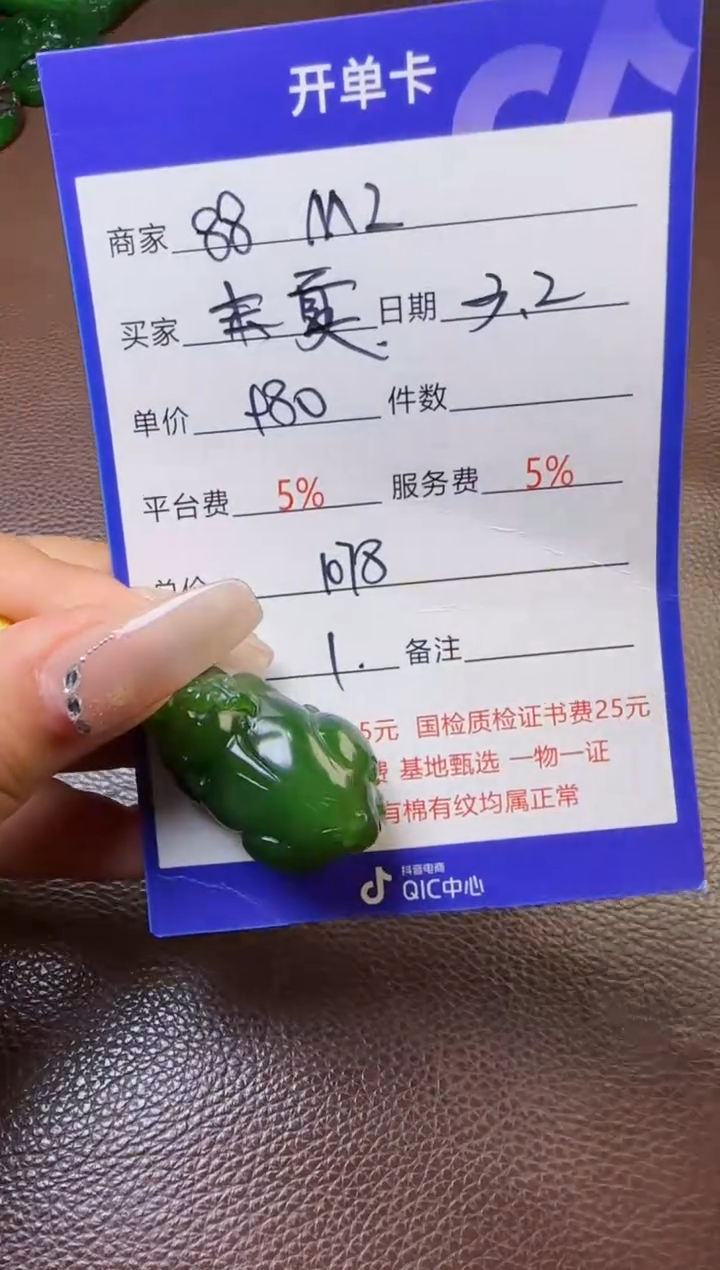 开单卡
商家 88 M2
买家 日期 3.2
单价 980 件数
平台费 5% 服务费 5%
总价 1078
1. 备注
5元 国检质检证书费25元
费 基地甄选 一物一证
有棉有纹均属正常
抖音电商
QIC中心